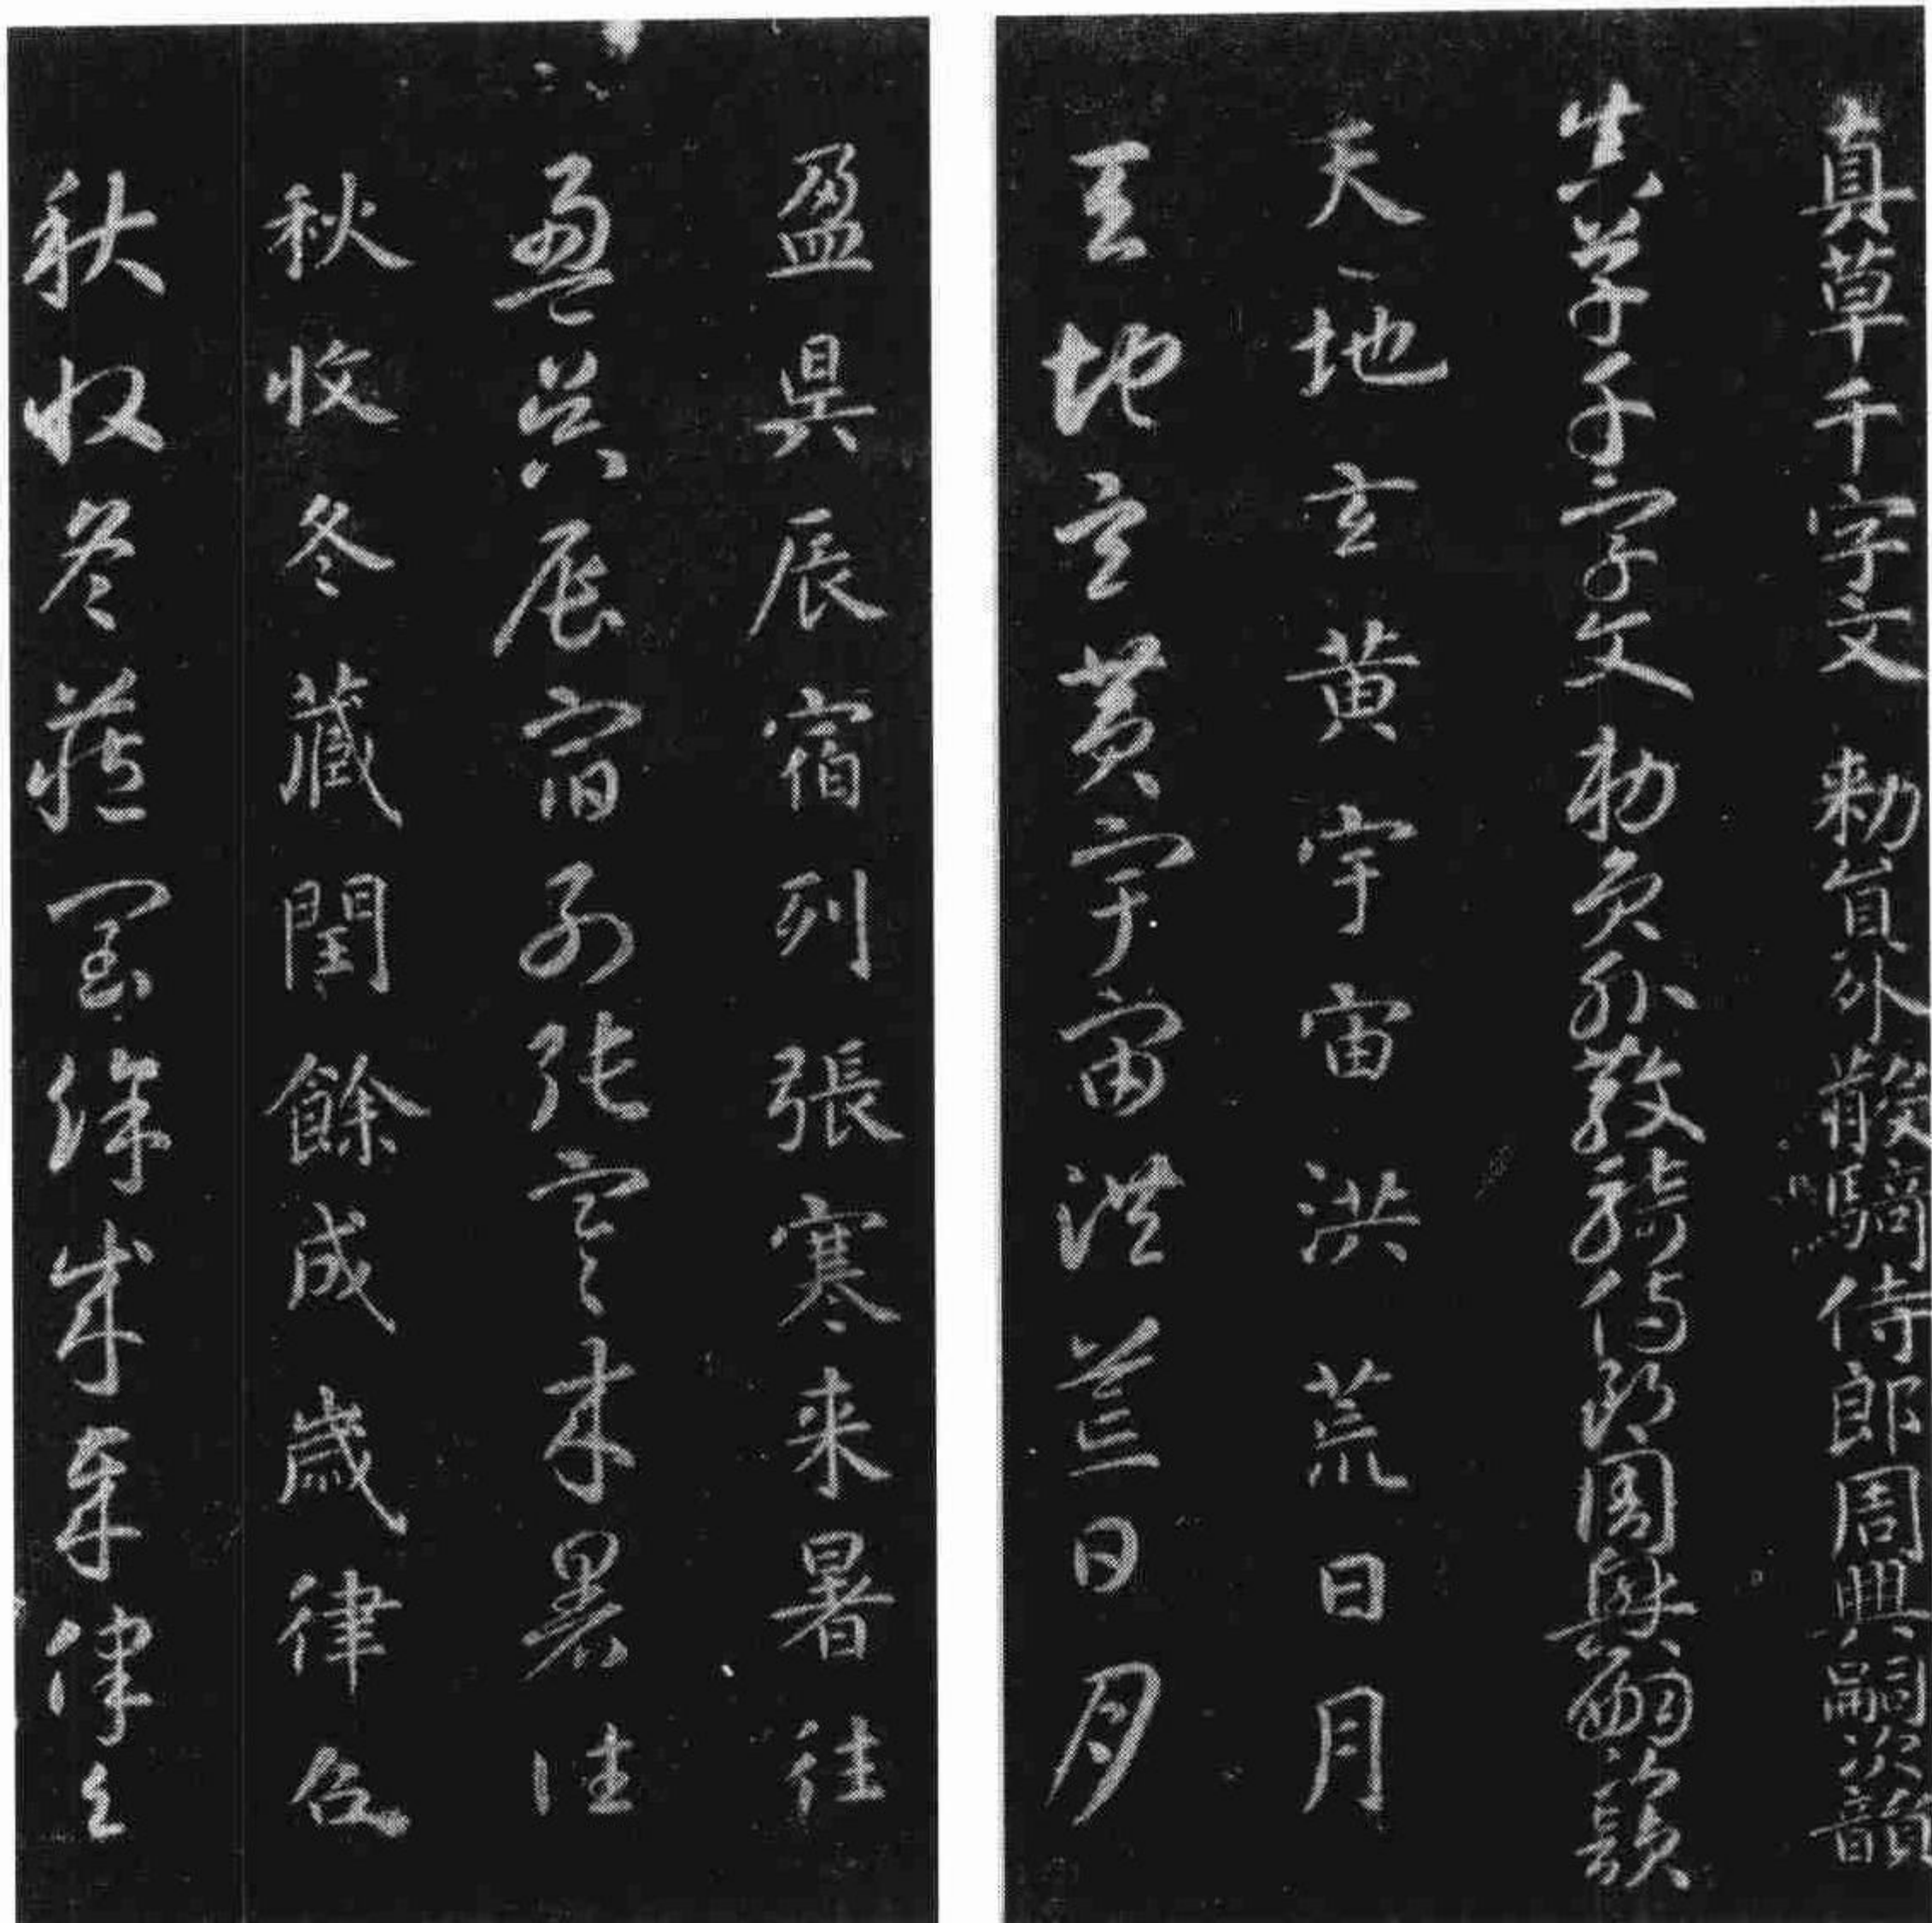 真草千字文 勅員外散騎侍郎周興嗣次韻
真草千字文 勅員外散騎侍郎周興嗣次韻
天地玄黄宇宙洪荒日月
天地玄黄宇宙洪荒日月
盈昃辰宿列張寒来暑往
盈昃辰宿列張寒来暑往
秋收冬藏閏餘成歲律召
秋收冬藏閏餘成歲律召